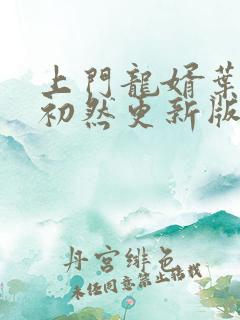 上門龍婿葉
初然更新版
丹宮緋色
未经同意禁止转载